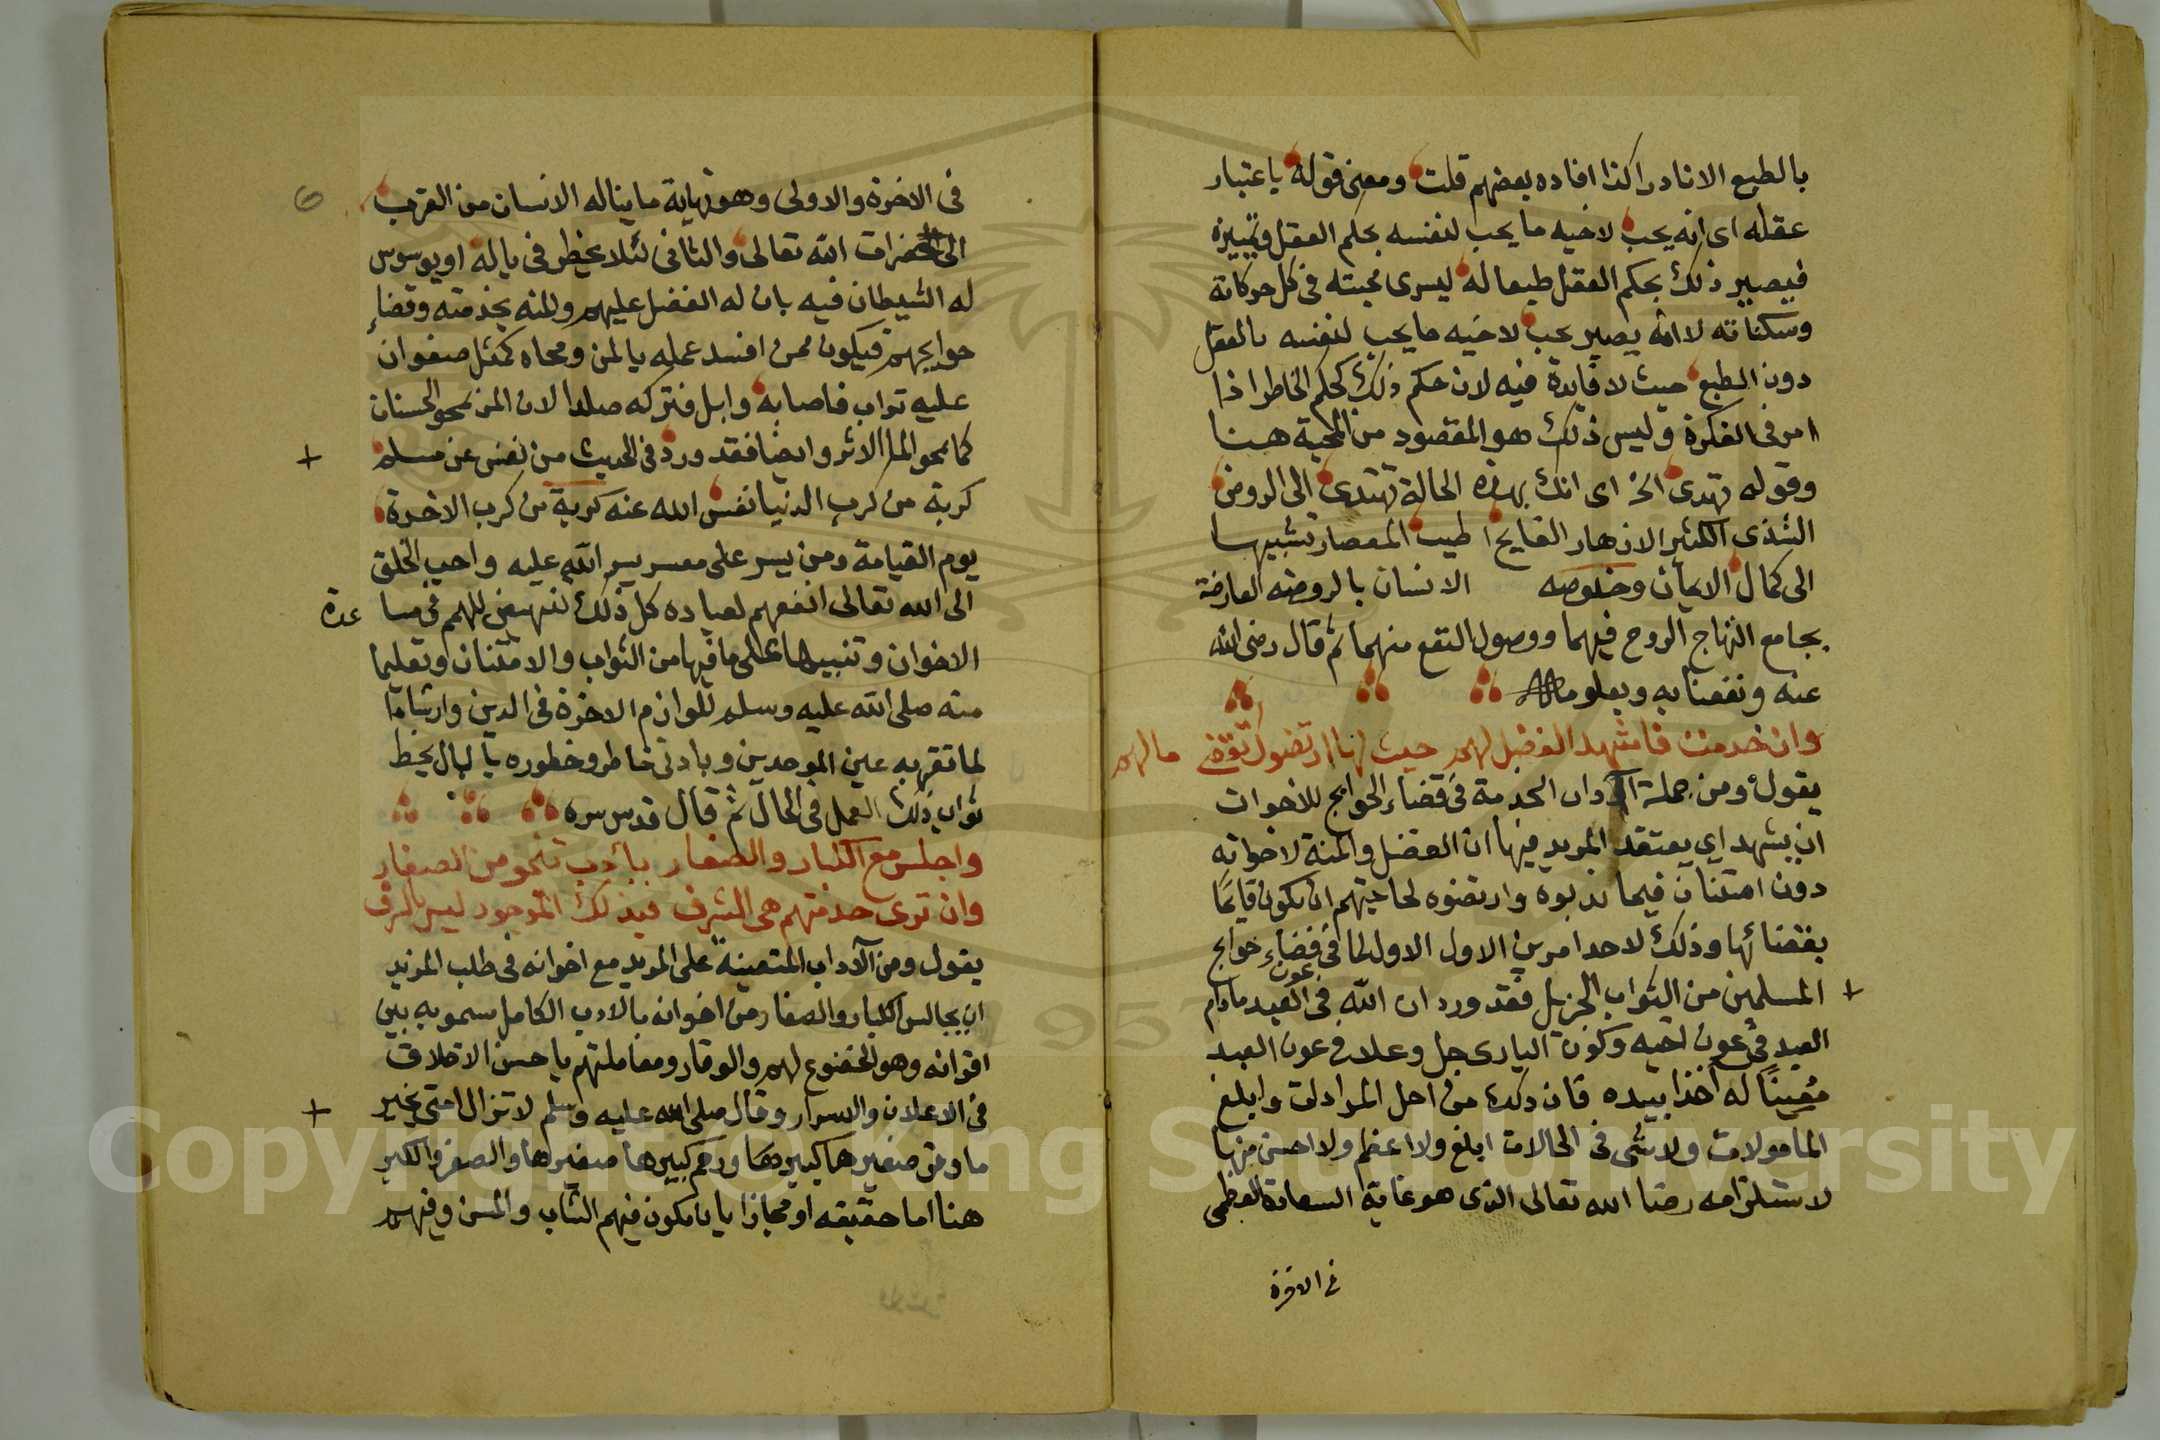 بالطبع الا نادرا كذا افاده بعضهم قلت ومعنى قوله باعتبار
عقله اى انه يحب لاخيه ما يحب لنفسه بحكم العقل وتمييزه
فيصير ذلك بحكم العقل طبعا له ليسرى محبته فى كل حركاته
وسكناته لا انه يصير يحب لاخيه ما يحب لنفسه بالعقل
دون الطبع حيث لا فايدة فيه لان حكم ذلك كحكم الخاطر اذا
امر فى الفكرة وليس ذلك هو المقصود من المحبة هنا
وقوله تهدى الخ اى انك بهذه الحالة تهتدى الى الروض
الشذى الكثير الازهار الفايح اطيب المعصار تشبيها
الى كمال الايمان وخلوصه الانسان بالروضه العارضة
بجامع انتهاج الروح فيهما ووصول النفع منهما ثم قال رضى الله
عنه ونفعنا به وبعلومه
وان خدمت فاشهد الفضل لهم حيث لها ارتضوك تقضى مالهم
يقول ومن جملة الاداب الخدمة فى قضاء الحوايج للاخوات
ان يشهد اي يعتقد المريد فيها ان الفضل والمنة لاخوانه
دون امتنان فيما ندبوه وارتضوه لحاجتهم ان يكون قايما
بقضائها وذلك لاحد امرين الاول الاول لما فى قضاء حوايج
المسلمين من الثواب الجزيل فقد ورد ان الله فى عون العبد مادام
العبد فى عون اخيه وكون البارى جل وعلا فى عون العبد
معينا له آخذا بيده فان ذلك من اجل المرادات وابلغ
المامولات ولا شئ فى الحالات ابلغ ولا اعظم ولا احسن منها
لاستلزامه رضا الله تعالى الذى هو غاية السعادة العظمى
فى الاخرة
فى الاخرة والاولى وهو نهاية ما يناله الانسان من القرب
الى حضرات الله تعالى والثانى لئلا يخطر فى باله او يوسوس
له الشيطان فيه بان له الفضل عليهم والمنه بخدمته وقضاء
حوايجهم فيكون ممن افسد عمله بالمن ومحاه كمثل صفوان
عليه تراب فاصابه وابل فتركه صلدا لان المن يمحو الحسنات
كما يمحو الماء الاثر وايضا فقد ورد فى الحديث من نفس عن مسلم
كربة من كرب الدنيا نفس الله عنه كربة من كرب الاخرة
يوم القيامة ومن يسر على معسر يسر الله عليه واحب الخلق
الى الله تعالى انفعهم لعباده كل ذلك لتنهيض للهمم فى مسا عدة
الاخوان وتنبيها على ما فيها من الثواب والامتنان وتعليما
منه صلى الله عليه وسلم للوازم الاخوة فى الدين وارشادا
لما تقر به عين الموحدين وبادنى خاطر وخطوره بالبال يحبط
ثواب ذلك العمل فى الحال ثم قال قدس سره
واجلس مع الكبار والصغار بادب تنجو من الصغار
وان ترى خدمتهم هى الشرف فبذلك الموجود ليس بالسرف
يقول ومن الآداب المتعينة على المريد مع اخوانه فى طلب المزيد
ان يجالس الكبار والصغار من اخوانه بالادب الكامل يسمو به بين
اقرانه وهو الخضوع لهم والوقار ومعاملتهم باحسن الاخلاق
فى الاعلان والاسرار وقال صلى الله عليه وسلم لا تزال امتى بخير
ما وقر صغيرها كبيرها ورحم كبيرها صغيرها والصغر والكبر
هنا اما حقيقه او مجازا بان يكون فيهم الشاب والمسن وفيهم